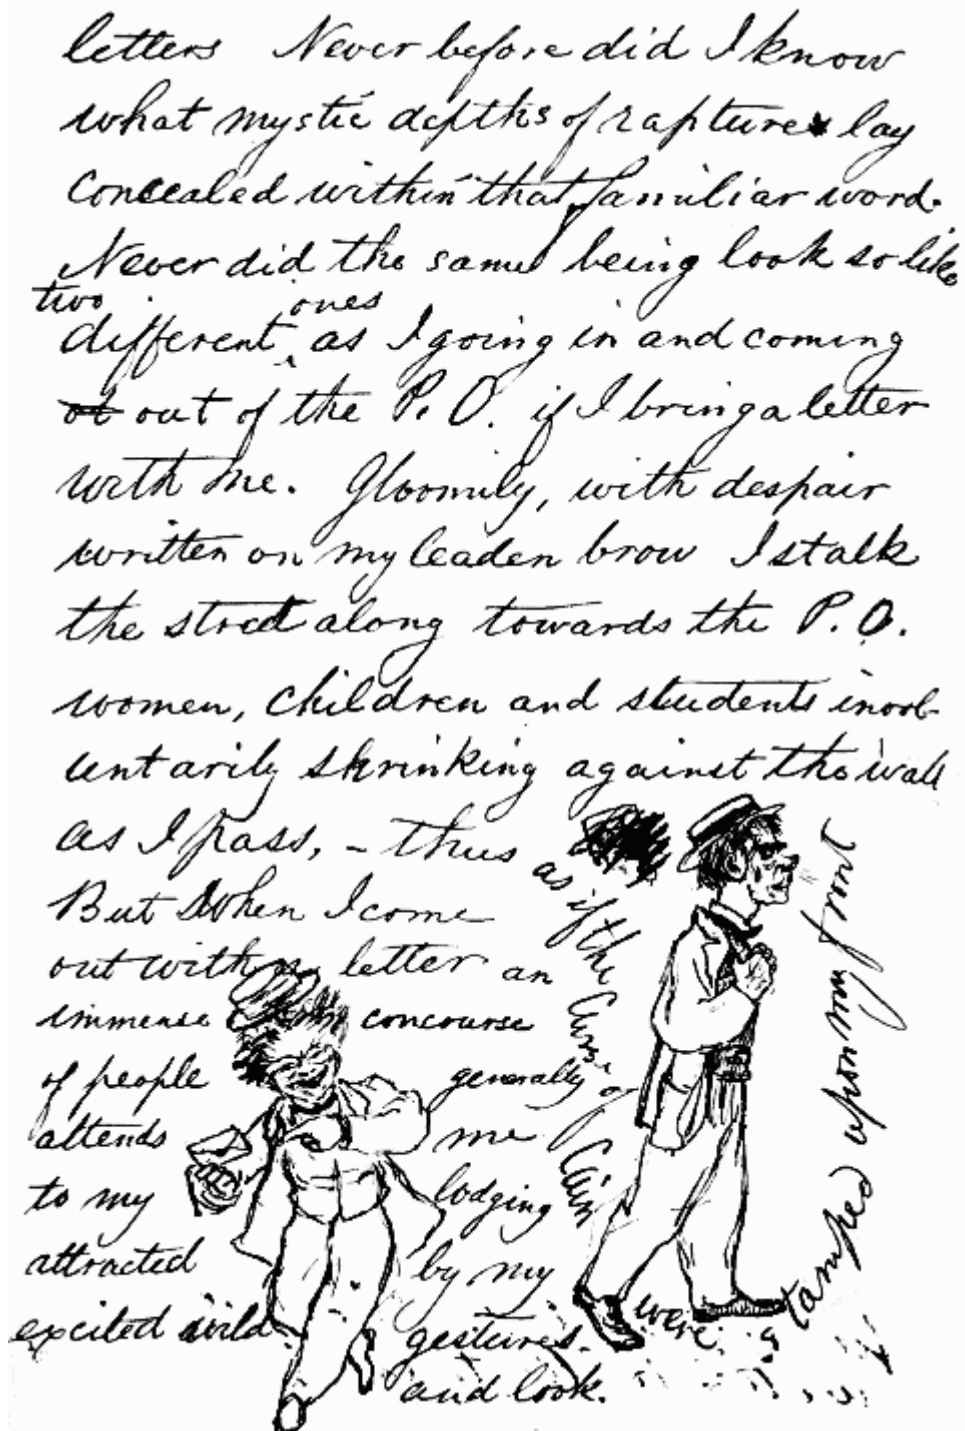 letters Never before did I know
what mystic depths of rapture lay
concealed within that familiar word.
Never did the same being look so like
two different ones as I going in and coming
out of the P. O. if I bring a letter
with me. Gloomily, with despair
written on my leaden brow I stalk
the street along towards the P. O.
women, children and students invol-
untarily shrinking against the wall
as I pass, – thus
as if the curse of Cain
were stamped upon my front
But when I come
out with a letter an
immense concourse
of people generally
attends me
to my lodging
attracted by my
excited wild gestures
and look.